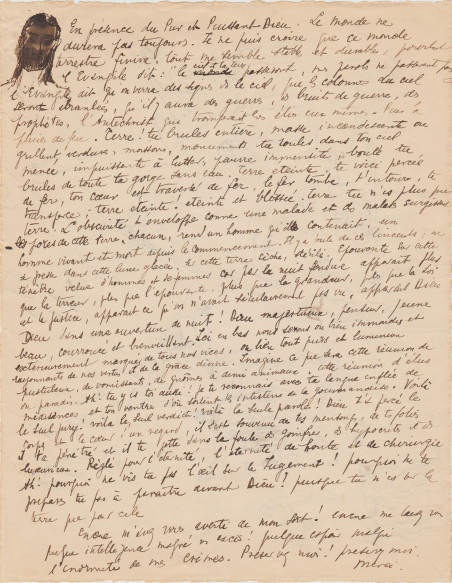 En présence du Pur et Puissant Dieu. Le monde ne
durera pas toujours. Je ne puis croire que ce monde
terrestre finira, tout me semble stable et durable, pourtant
l'Evangile dit : le ciel et la terre passeront, mes paroles ne passeront pas
l'Evangile dit qu'on verra des signes dans le ciel, que les colonnes du ciel
seront ébranlées, qu'il y aura des guerres, des bruits de guerre, des
prophètes, l'Antechrist qui tromperait les élus eux même. Puis la
pluie de feu. Terre ! tu brules entière, masse incandescente ou
grillent verdure, maisons, monuments tu roules dans ton ciel
menée, impuissante à lutter, pauvre immensité, boule tu
brules de toute ta gorge sans eau. terre éteinte, te voici percée
de fer, ton cœur est traversé de fer, le fer tombe, t'entoure, te
transforce. terre éteinte ! éteinte et blessée. terre tu n'es plus que
terre ! L'obscurité t'enveloppe comme une malade et de malets surgissent
les fosses de cette terre, chacun, rend un homme qu'elle contenait, un
homme vivant et mort depuis le commencement. Il y a foule de ces linceuls ; ne
à peste dans cette lune glacée, à cette terre sèche, stérile. Epouvante sur cette
ténèbre velue d'hommes et de femmes car par la nuit fendue apparait plus
que la terreur, plus que l'épouvante, plus que la grandeur, plus que la loi
et la justice, apparait ce qu'on n'avait séculairement pas vu, apparait Dieu
Dieu dans une ouverture de nuit ! Dieu majestueux, penseur, jeune
beau, courroucé et bienveillant. Ici en bas nous serons ou bien immondes et
extérieurement marqués de tous nos vices, ou bien tout purs et lumineux
rayonnants de nos vertus et de la grâce divine. Imagine ce que sera cette réunion de
pustuleux, de vomissants, de gnomes à demi animaux, cette réunion d'élus
en paradis. Ah ! tu y es toi aussi ! je te reconnais avec ta langue enflée de
médisances et ton ventre d'où sortent les intestins de la gourmandise. Voilà
le seul jury. voila le seul verdict ! voilà la seule parole ! Dieu t'a percé le
corps et le cœur d'un regard, il s'est souvenu de tes mensonges, de tes folies
il t'a pénétré et il te jette dans la foule de goinfres, d'hypocrites et de
luxurieux. Réglé pour l'éternité, l'éternité de honte et de chirurgie
Ah ! pourquoi ne vis tu pas l'œil sur le Jugement ! pourquoi ne te
prépares tu pas à paraitre devant Dieu ! puisque tu n'es sur la
terre que pour cela
Encore m'avez vous averti de mon sort ! encore me laissez vous
quelque intelligence malgré mes excès ! quelque espoir malgré
l'énormité de mes crimes. Préservez moi ! préservez moi.
Merci.